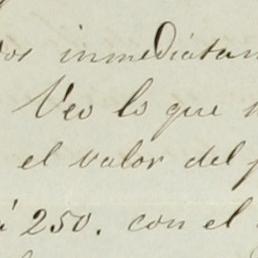 inmediatam
Veo lo que
el valor del
á 250. con el